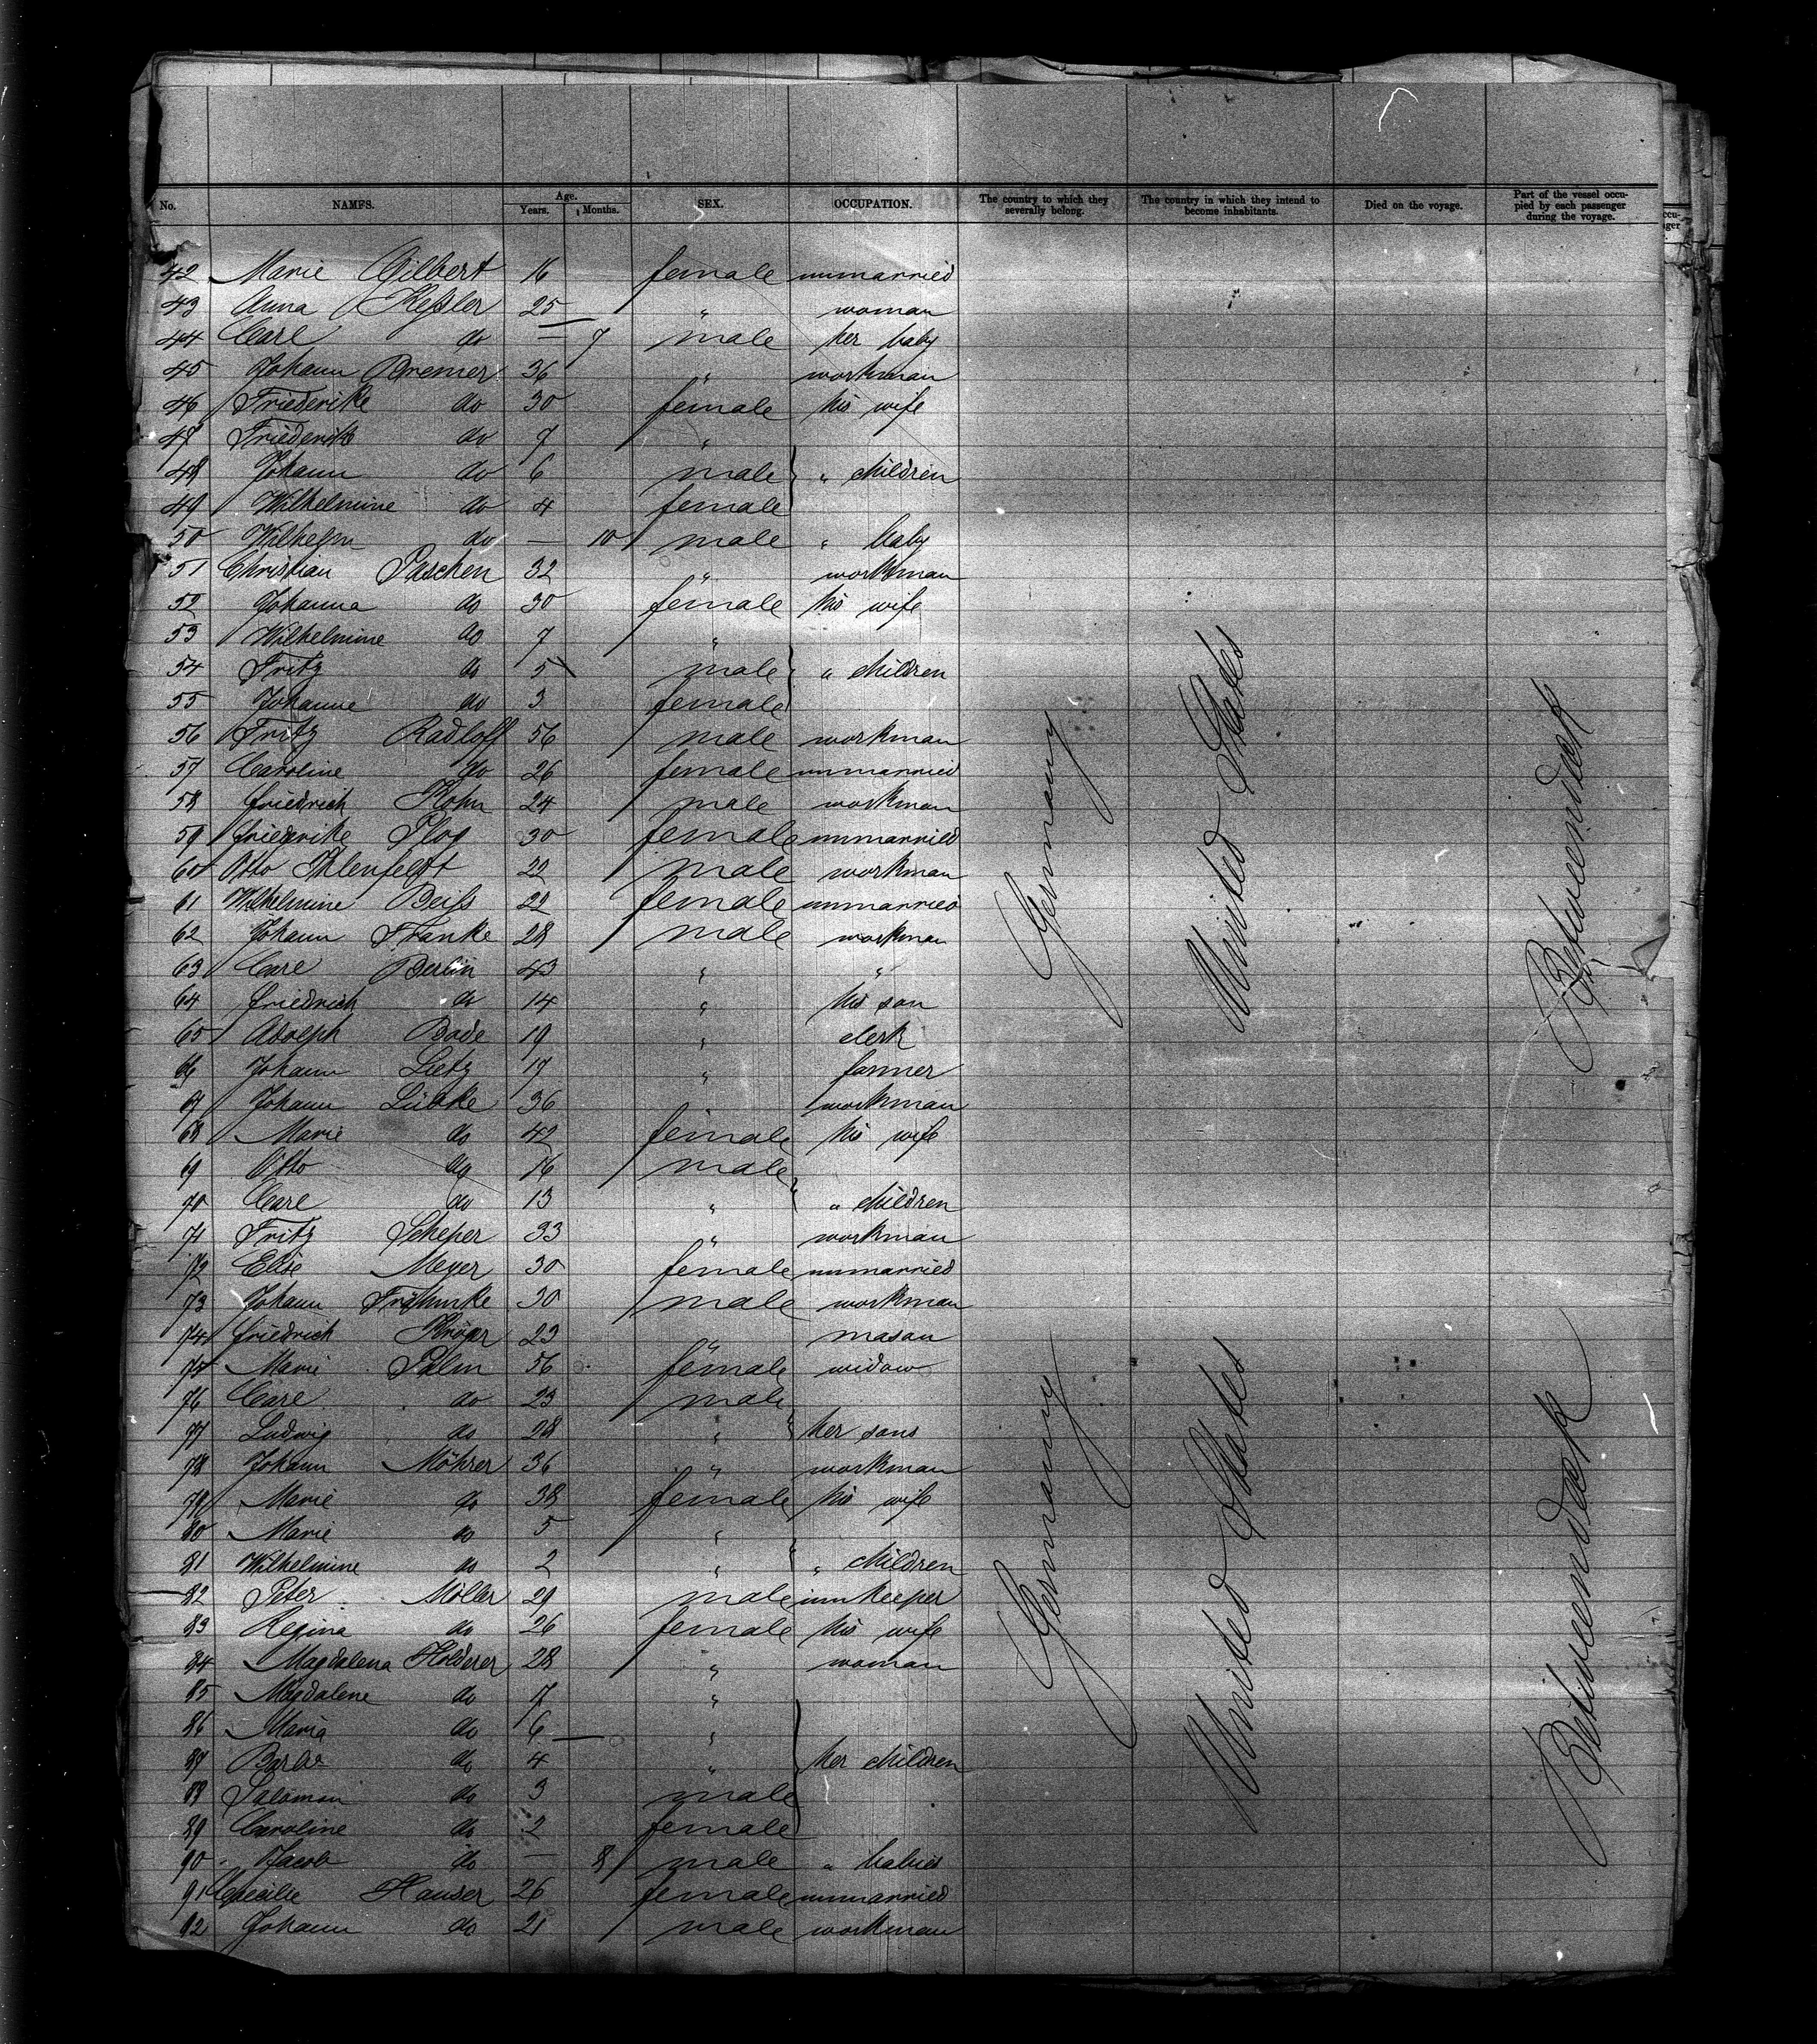 No. NAMES. Age. Years. Months. SEX. OCCUPATION. The country to which they severally belong. The country in which they intend to become inhabitants. Died on the voyage. Part of the vessel occupied by each passenger during the voyage.
42 Marie Gilbert 16 female unmarried
43 Anna Keßler 25 " woman
44 Carl do — 7 male her baby
45 Johann Bremer 36 " workman
46 Friederike do 30 female his wife
47 Friederike do 7 "
48 Johann do 6 male " children
49 Wilhelmine do 4 female
50 Wilhelm do — 10 male " baby
51 Christian Paschen 32 " workman
52 Johanna do 30 female his wife
53 Wilhelmine do 7 "
54 Fritz do 5 male " children
55 Johanne do 3 female
56 Fritz Radloff 56 male workman
57 Caroline do 26 female unmarried
58 Friedrich Kohn 24 male workman
59 Friederike Plog 30 female unmarried
60 Otto Ihlenfeldt 22 male workman
61 Wilhelmine Beiß 22 female unmarried
62 Johann Franke 28 male workman
63 Carl Berlin 43 " "
64 Friedrich do 14 " his son
65 Adolph Bode 19 " clerk
66 Johann Lietz 17 " farmer
67 Johann Lübke 36 workman
68 Marie do 42 female his wife
69 Otto do 16 male
70 Carl do 13 " " children
71 Fritz Scheper 33 " workman
72 Elise Meyer 30 female unmarried
73 Johann 30 male workman
74 Friedrich Kröger 23 " mason
75 Marie Palm 56 female widow
76 Carl do 23 male
77 Ludwig do 28 " her sons
78 Johann Möhrer 36 " workman
79 Marie do 38 female his wife
80 Marie do 5 "
81 Wilhelmine do 2 " " children
82 Peter Möller 29 male innkeeper
83 Regina do 26 female his wife
84 Magdalena Holderer 28 " woman
85 Magdalene do 7 "
86 Maria do 6 "
87 Barba do 4 " her children
88 Salomon do 3 male
89 Caroline do 2 female
90 Jacob do — 8 male " babies
91 Caecilie Hauser 26 female unmarried
92 Johann do 21 male workman
Germany
United States
Betweendeck
Germany
United States
Betweendeck